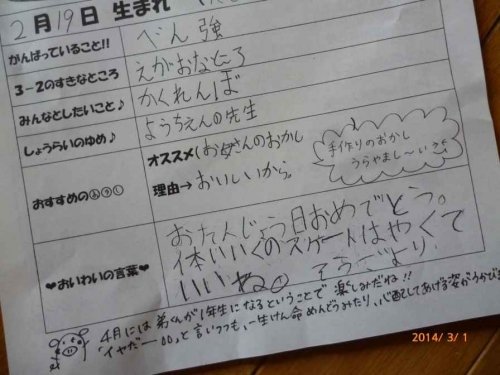 2月19日 生まれ
がんばっていること!! べん強
3-2のすきなところ えがおなところ
みんなとしたいこと♪ かくれんぼ
しょうらいのゆめ♪ ようちえんの先生
おすすめの オススメ(お母さんのおかし
理由→おいしいから。
手作りのおかし
うらやまし〜い
♥おいわいの言葉♥ おたんじょう日おめでとう。
体いくのスケートはやくて
いいね
4月には弟くんが1年生になるということで楽しみだね!!
「イヤだー」と言いつつも、一生けん命めんどうみたり、心配してあげる姿が
2014/3/1